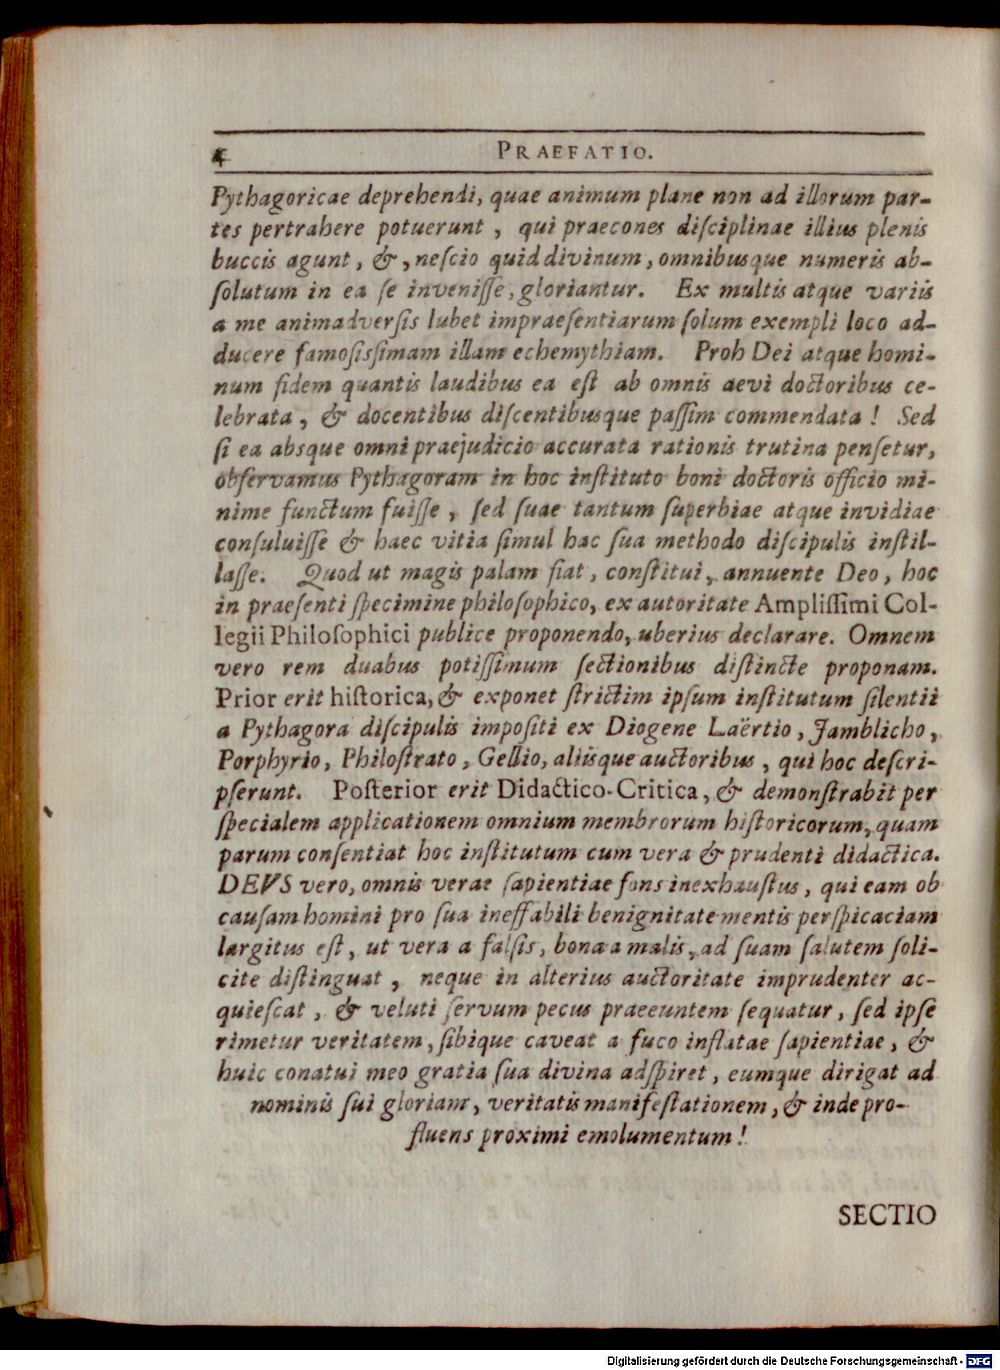 4 PRAEFATIO.
Pythagoricae deprehendi, quae animum plane non ad illorum par-
tes pertrahere potuerunt, qui praecones diſciplinae illius plenis
buccis agunt, &, neſcio quid divinum, omnibusque numeris ab-
ſolutum in ea ſe inveniſſe, gloriantur. Ex multis atque variis
a me animadverſis lubet impraeſentiarum ſolum exempli loco ad-
ducere famoſisſimam illam echemythiam. Proh Dei atque homi-
num fidem quantis laudibus ea eſt ab omnis aevi doctoribus ce-
lebrata, & docentibus diſcentibusque paſſim commendata! Sed
ſi ea absque omni praejudicio accurata rationis trutina penſetur,
obſervamus Pythagoram in hoc inſtituto boni doctoris officio mi-
nime functum fuiſſe, ſed ſuae tantum ſuperbiae atque invidiae
conſuluiſſe & haec vitia ſimul hac ſua methodo diſcipulis inſtil-
laſſe. Quod ut magis palam fiat, conſtitui, annuente Deo, hoc
in praeſenti ſpecimine philoſophico, ex autoritate Ampliſſimi Col-
legii Philoſophici publice proponendo, uberius declarare. Omnem
vero rem duabus potiſſimum ſectionibus diſtincte proponam.
Prior erit hiſtorica, & exponet ſtrictim ipſum inſtitutum ſilentii
a Pythagora diſcipulis impoſiti ex Diogene Laërtio, Jamblicho,
Porphyrio, Philoſtrato, Gellio, aliisque auctoribus, qui hoc deſcri-
pſerunt. Poſterior erit Didactico-Critica, & demonſtrabit per
ſpecialem applicationem omnium membrorum hiſtoricorum, quam
parum conſentiat hoc inſtitutum cum vera & prudenti didactica.
DEVS vero, omnis verae ſapientiae fons inexhauſtus, qui eam ob
cauſam homini pro ſua ineffabili benignitate mentis perſpicaciam
largitus eſt, ut vera a falſis, bona a malis, ad ſuam ſalutem ſoli-
cite diſtinguat, neque in alterius auctoritate imprudenter ac-
quieſcat, & veluti ſervum pecus praeeuntem ſequatur, ſed ipſe
rimetur veritatem, ſibique caveat a fuco inflatae ſapientiae, &
huic conatui meo gratia ſua divina adſpiret, eumque dirigat ad
nominis ſui gloriam, veritatis manifeſtationem, & inde pro-
fluens proximi emolumentum!
SECTIO
Digitalisierung gefördert durch die Deutsche Forschungsgemeinschaft - DFG